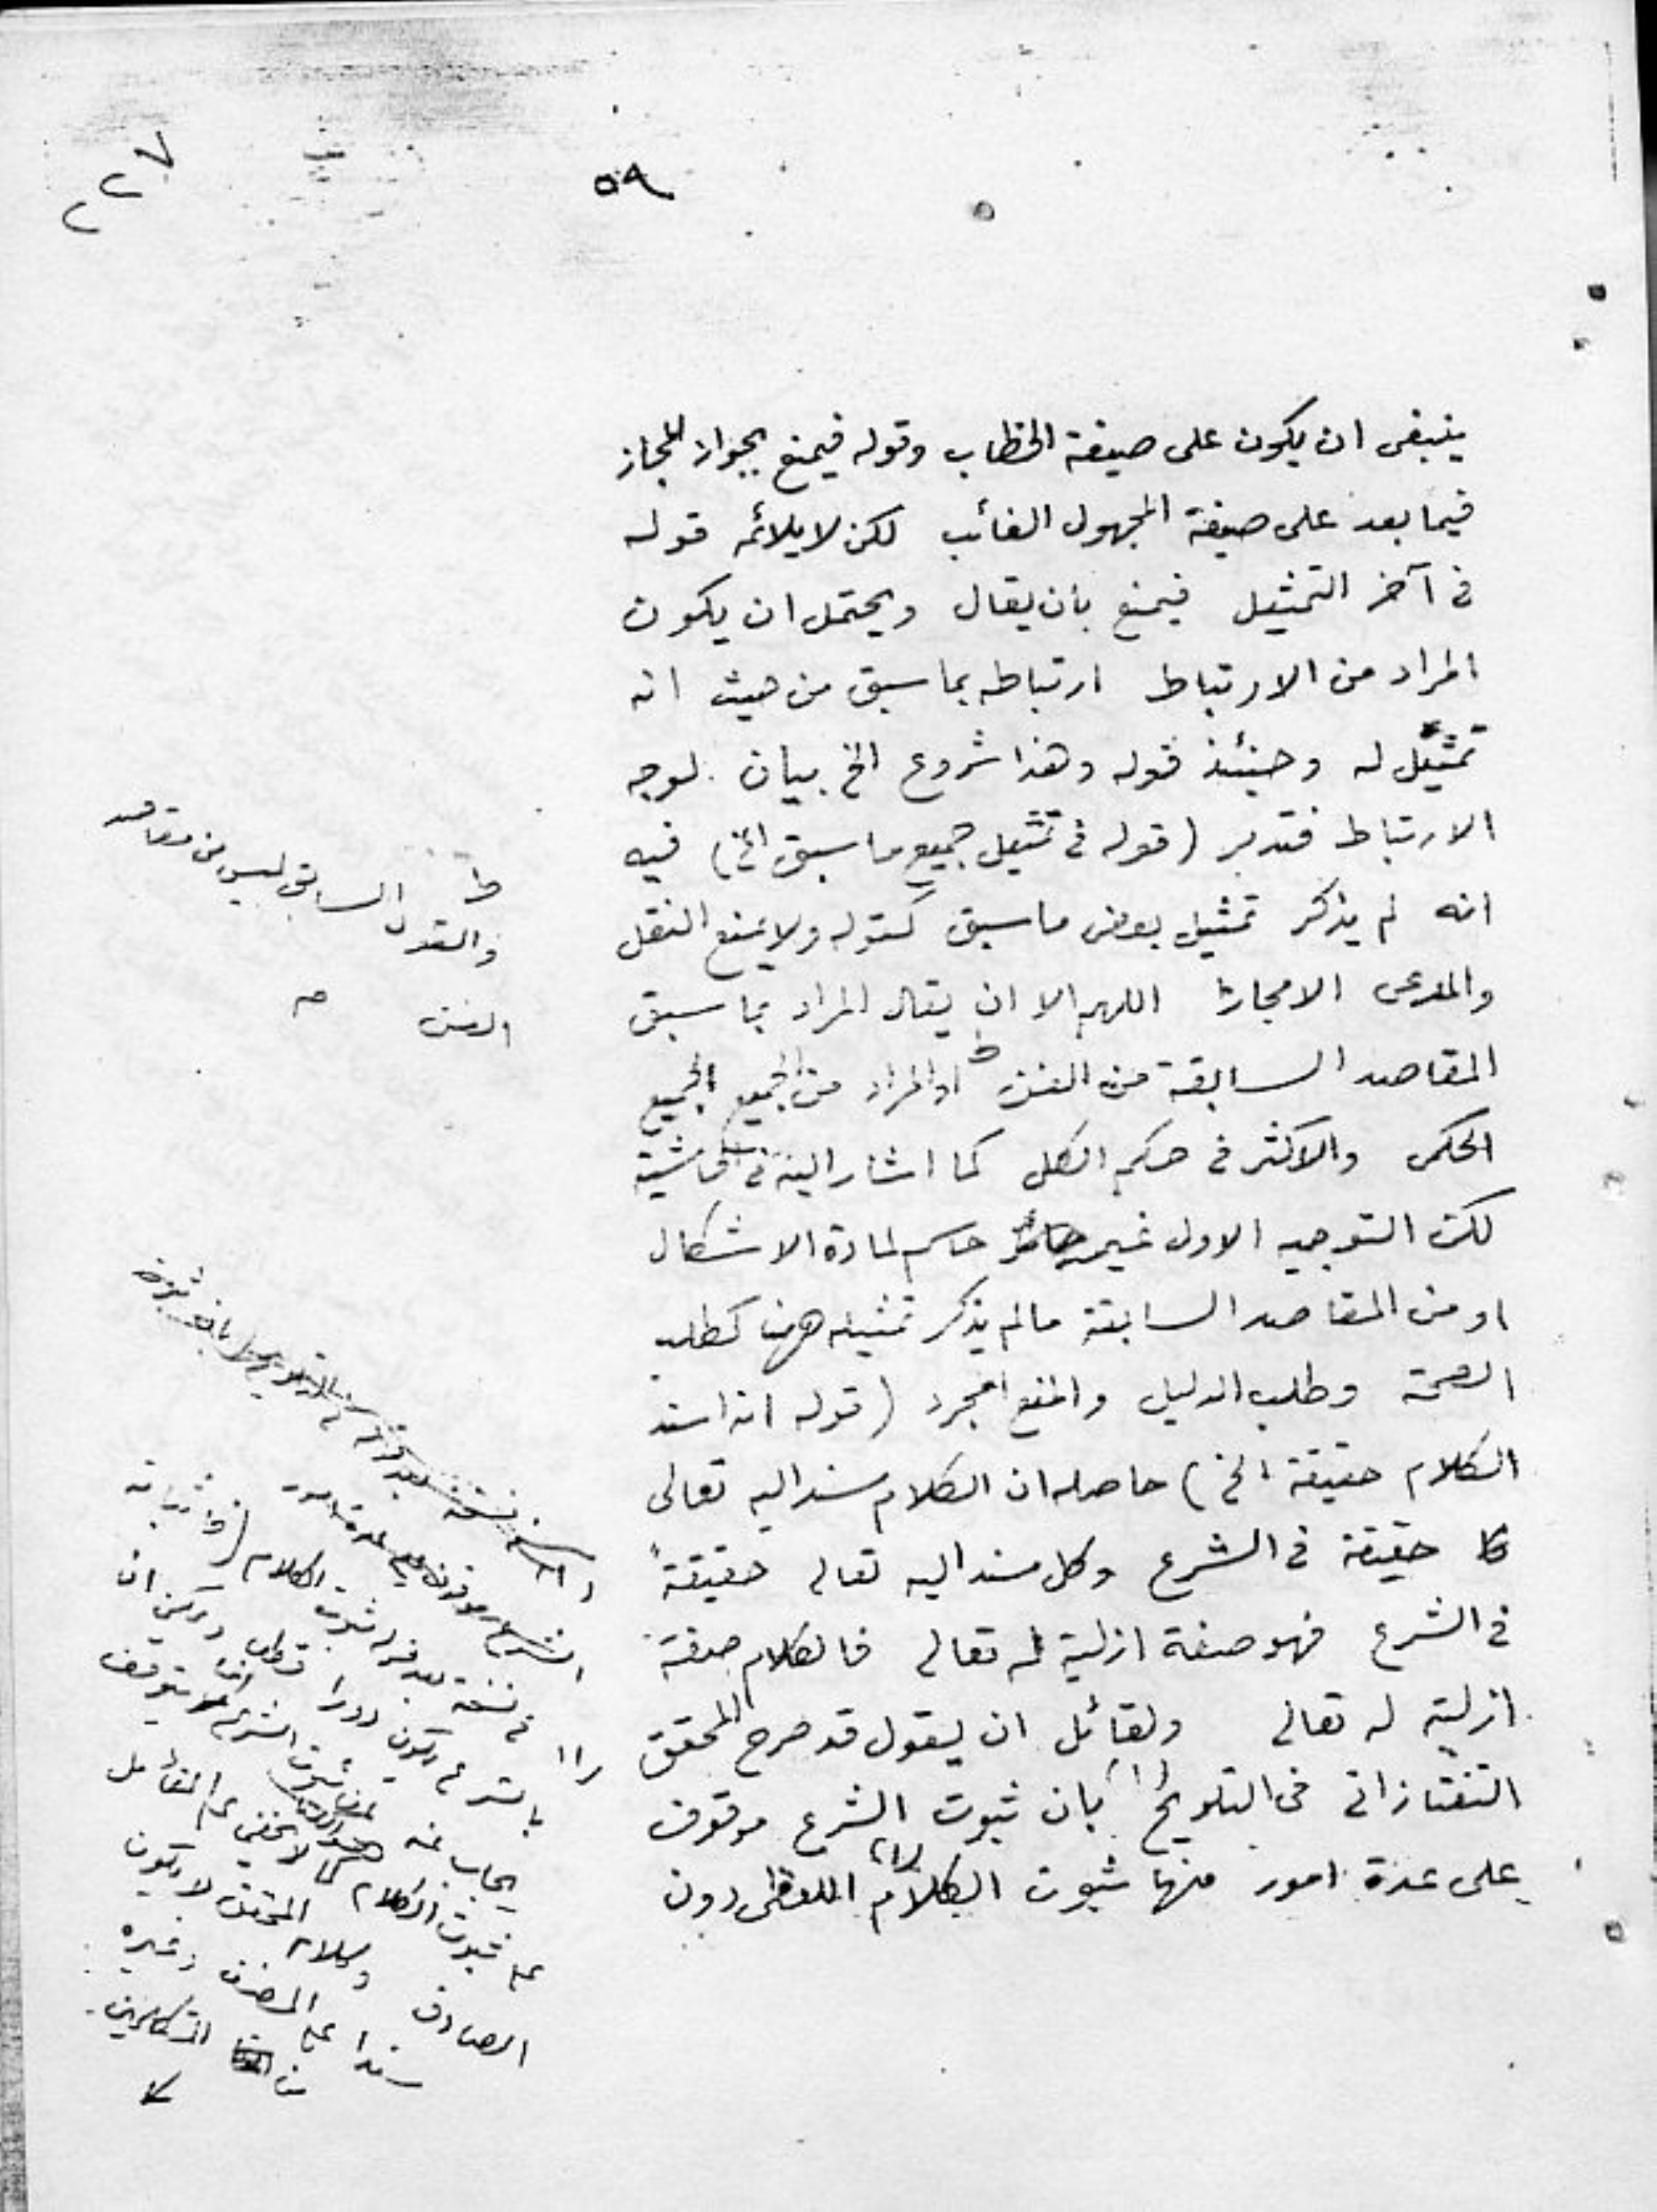 ٥٩
٢٧
ينبغى ان يكون على صيغة الخطاب وقوله فيمنع بجواز المجاز
فيما بعد على صيغة المجهول الغائب لكن لا يلائمه قوله
فى آخر التمثيل فيمنع بان يقال ويحتمل ان يكون
المراد من الارتباط ارتباطه بما سبق من حيث انه
تمثيل له وحينئذ قوله وهذا شروع الخ بيان لوجه
الارتباط فتدبر (قوله فى تمثيل جميع ما سبق الخ) فيه
انه لم يذكر تمثيل بعض ما سبق كقوله ولا يمنع النقل
والمدعى الا مجازا اللهم الا ان يقال المراد بما سبق
المقاصد السابقة من الفن ط او المراد من الجميع الجميع
الحكمى والاكثر فى حكم الكل كما اشار اليه فى الحاشية
لكن التوجيه الاول غير حاسم لمادة الاشكال
او من المقاصد السابقة ما لم يذكر تمثيله ههنا كطلب
الصحة وطلب الدليل والمنع المجرد (قوله انه اسند
الكلام حقيقة الخ) حاصله ان الكلام مسند اليه تعالى
حقيقة فى الشرع وكل مسند اليه تعالى حقيقةً
فى الشرع فهو صفة ازلية له تعالى فالكلام صفة
ازلية له تعالى ولقائل ان يقول قد صرح المحقق
التفتازانى فى التلويح (١) بان ثبوت الشرع موقوف
على عدة امور منها ثبوت الكلام (٢) اللفظى دون
ط
والقول السابق ليس من مقاصد
الفن صه
الشرع موقوف على عدة امور
فى نسخة بعد قوله ثبوت الكلام
بالشرع يكون دورا ويمكن ان
يجاب عنه ثبوت الشرع يتوقف
على ثبوت الكلام كما لا يخفى على المتأمل
الصادق وكلام المحقق لا يكون
سندا على المصنف وغيره
من المتكلمين